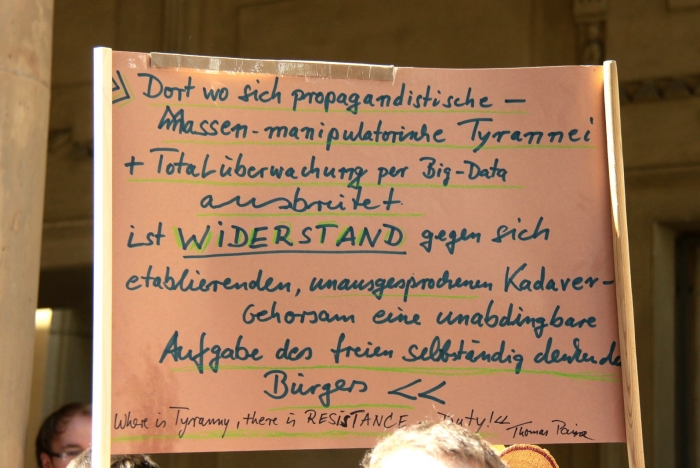 >> Dort wo sich propagandistische –
Massen-manipulatorische Tyrannei
+ Totalüberwachung per Big-Data
ausbreitet
ist WiDERSTAND gegen sich
etablierenden, unausgesprochenen Kadaver-
Gehorsam eine unabdingbare
Aufgabe des freien selbständig denkende
Bürgers <<
Where is Tyranny, there is RESiSTANCE Duty! <<
Thomas